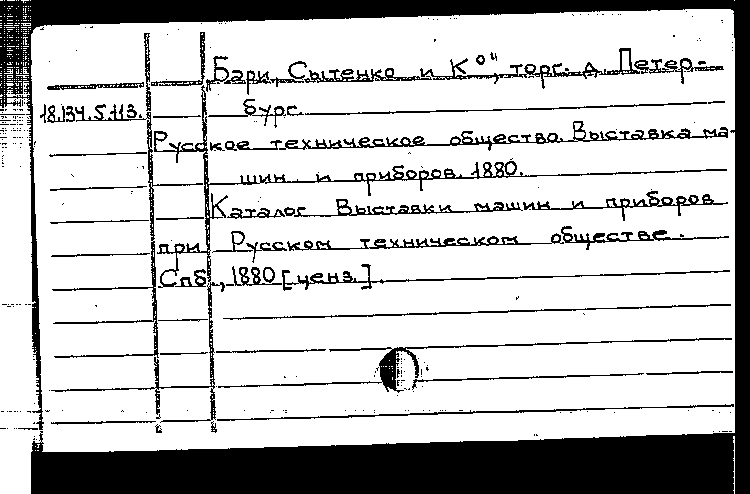 „Бари, Сытенко и К°", торг. д. Петер-
18.134.5.113. бург.
Русское техническое общество. Выставка ма-
шин и приборов. 1880.
Каталог Выставки машин и приборов
при Русском техническом обществе.
Спб., 1880 [ценз.].